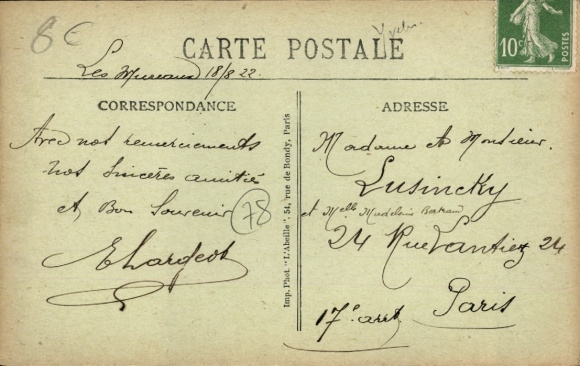 8€
Yvelin.
CARTE POSTALE
10c
POSTES
Les Mureaux 18/8 22.
CORRESPONDANCE
Avec nos remerciements
nos sincères amitiés
et Bon Souvenir
78
Imp. Phot "L'Abeille". 54, rue de Bondy, Paris
ADRESSE
Madame et Monsieur.
Lusincky
et Melle Madelaine Bertrand
24 Rue Lantiez 24
Paris
17e arrt